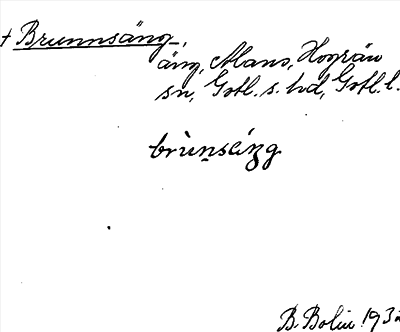 + Brunnsäng,
äng, Mans, Hogrän
sn, Gotl. s. hd, Gotl. l.
brùnsäŋg
B. Bolin 1932